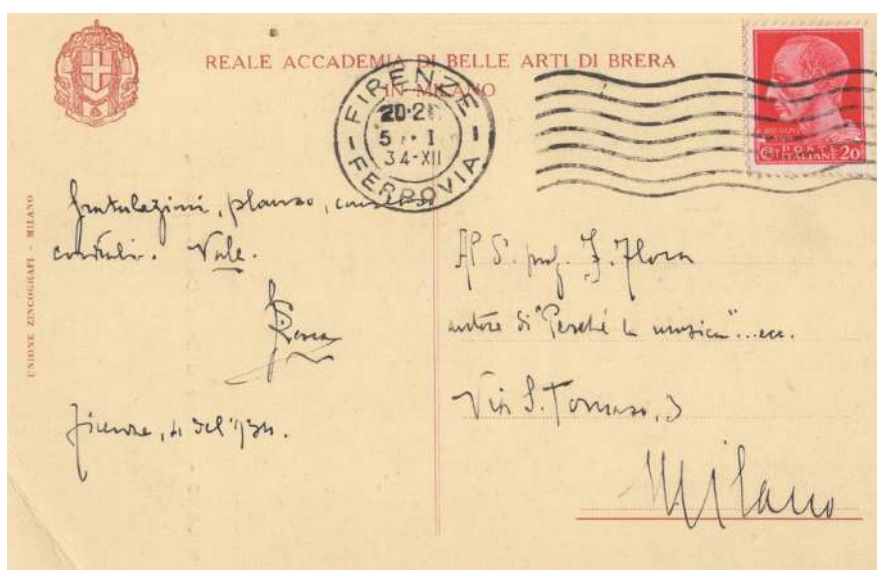 REALE ACCADEMIA DI BELLE ARTI DI BRERA
IN MILANO
FIRENZE
20·2
5 · I
34-XII
FERROVIA
POSTE
ITALIANE 20
UNIONE ZINCOGRAFI - MILANO
plauso,
cordiali. Vale.
Firenze, 4 del '934.
A S. prof. F. Flora
autore di "Perché la musica"...ecc.
Via S. Tomaso, 3
Milano